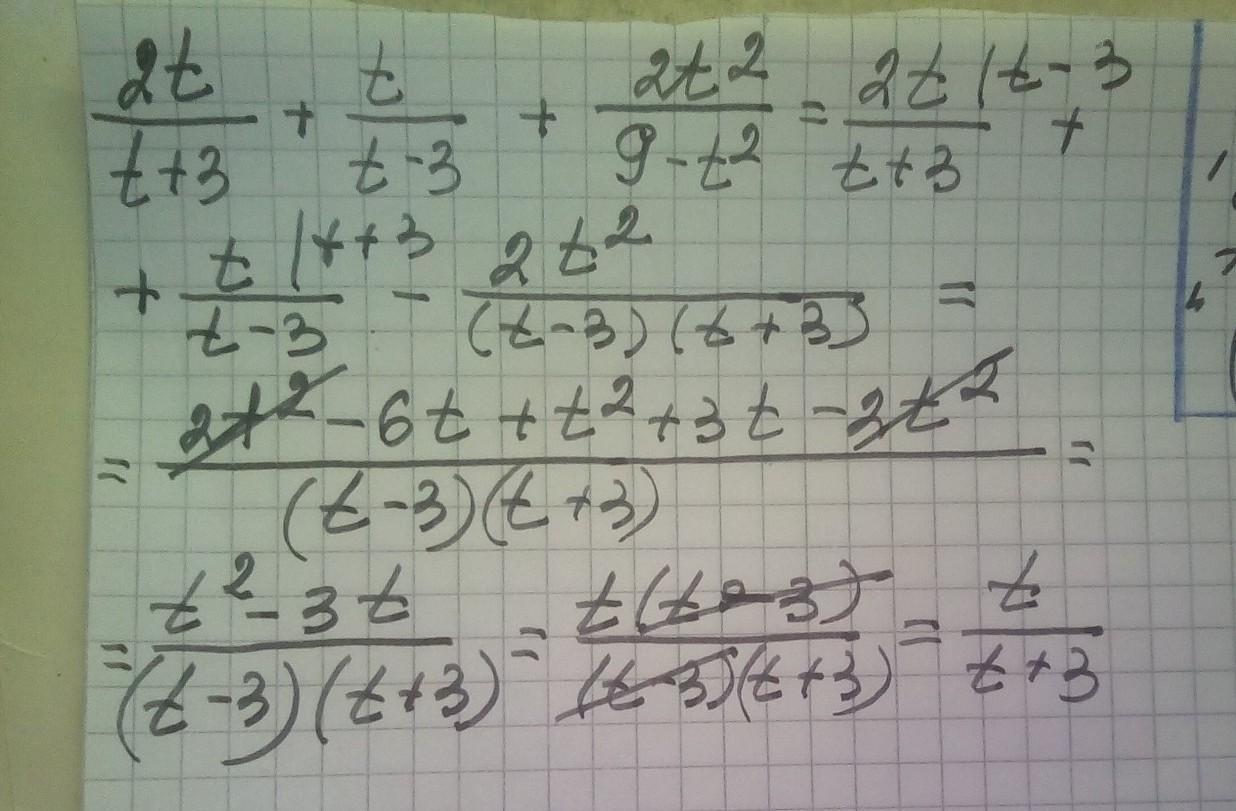 2t/(t+3) + t/(t-3) + 2t²/(9-t²) = 2t|t-3/(t+3) +
+ t|t+3/(t-3) - 2t²/((t-3)(t+3)) =
= (2t² - 6t + t² + 3t - 2t²)/((t-3)(t+3)) =
= (t² - 3t)/((t-3)(t+3)) = t(t-3)/((t-3)(t+3)) = t/(t+3)